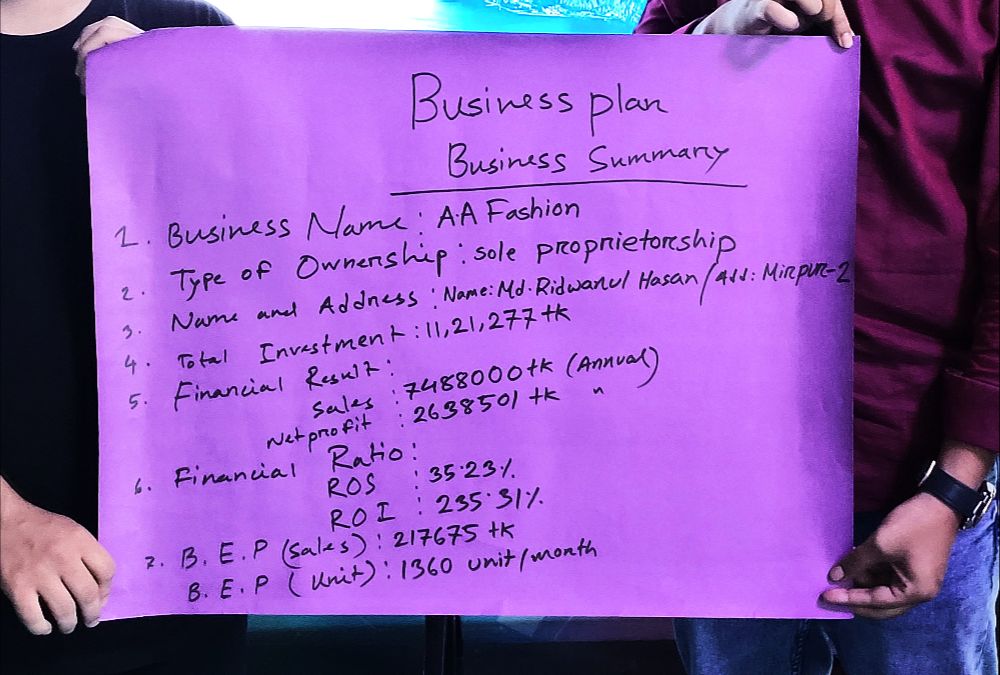 Business plan
Business Summary
1. Business Name: A.A Fashion
2. Type of Ownership: sole proprietorship
3. Name and Address: Name: Md. Ridwanul Hasan / Add: Mirpur-2
4. Total Investment: 11,21,277 tk
5. Financial Result:
Sales : 7488000 tk (Annual)
Net profit : 2638501 tk "
6. Financial Ratio:
ROS : 35.23%
ROI : 235.31%
7. B.E.P (Sales): 217675 tk
B.E.P (Unit): 1360 unit/month